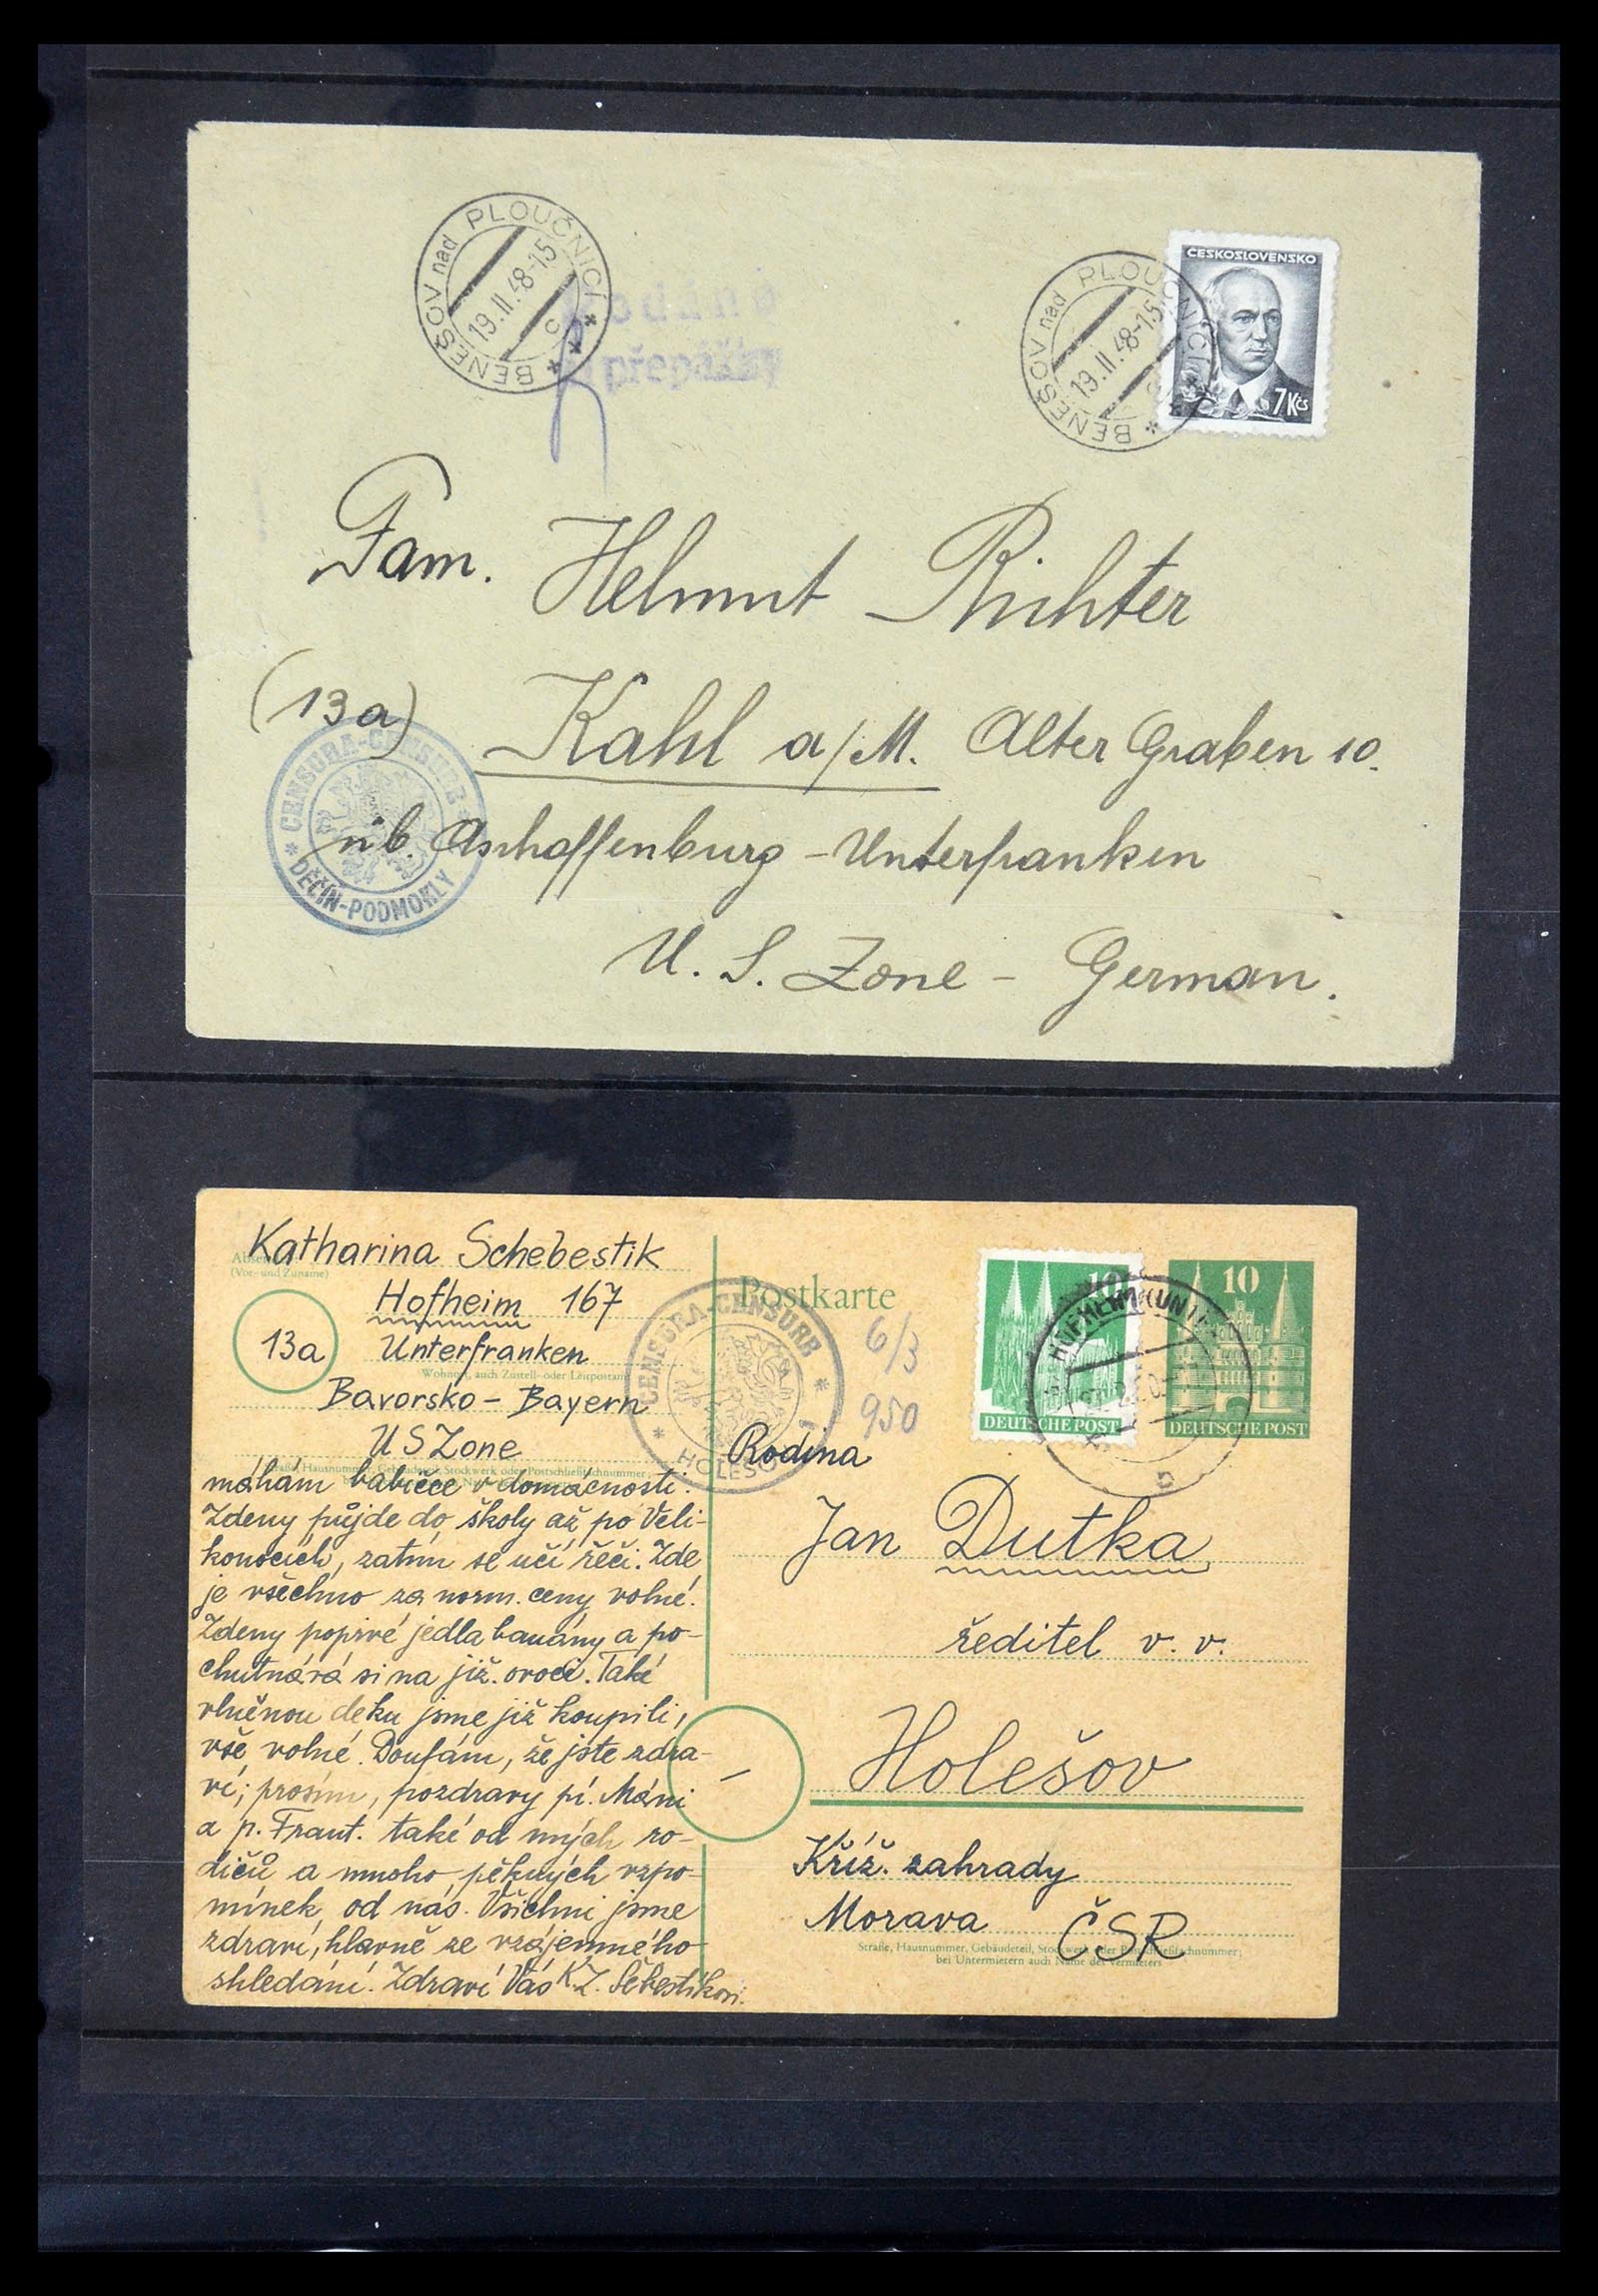 BENEŠOV nad PLOUČNICÍ
19.II.48-15
c
Podáno
u přepážky
BENEŠOV nad PLOUČNICÍ
19.II.48-15
c
ČESKOSLOVENSKO
7 Kčs
Fam. Helmut Richter
(13a) Kahl a/M. Alter Graben 10.
üb. Aschaffenburg - Unterfranken
U. S. Zone - German.
CENSURA-CENSURE
* DĚČÍN-PODMOKLY *
Katharina Schebestik
(Vor- und Zuname)
Hofheim 167
13a Unterfranken
Wohnort, auch Zustell- oder Leitpostamt
Bavorsko - Bayern
US Zone
máhám babičce v domácnosti.
Zdeny půjde do školy až po Veli-
konocích, zatím se učí řeči. Zde
je všechno za norm. ceny volné.
Zdeny poprvé jedla banány a po-
chutnává si na již. ovoci. Také
vlněnou deku jsme již koupili,
vše volné. Doufám, že jste zdra-
ví; prosím, pozdravy pí. Máni
a p. Frant. také od mých ro-
dičů a mnoho pěkných vzpo-
mínek od nás. Všichni jsme
zdraví, hlavně ze vzájemného
shledání. Zdraví Vás K.Z. Šebestíkovi.
Postkarte
CENSURA-CENSURE
* HOLEŠOV *
6/3
950
10
DEUTSCHE POST
10
DEUTSCHE POST
Rodina
Jan Dutka
ředitel v. v.
Holešov
Kříž. zahrady
Morava ČSR
Straße, Hausnummer, Gebäudeteil, Stockwerk oder Postschließfachnummer;
bei Untermietern auch Name des Vermieters